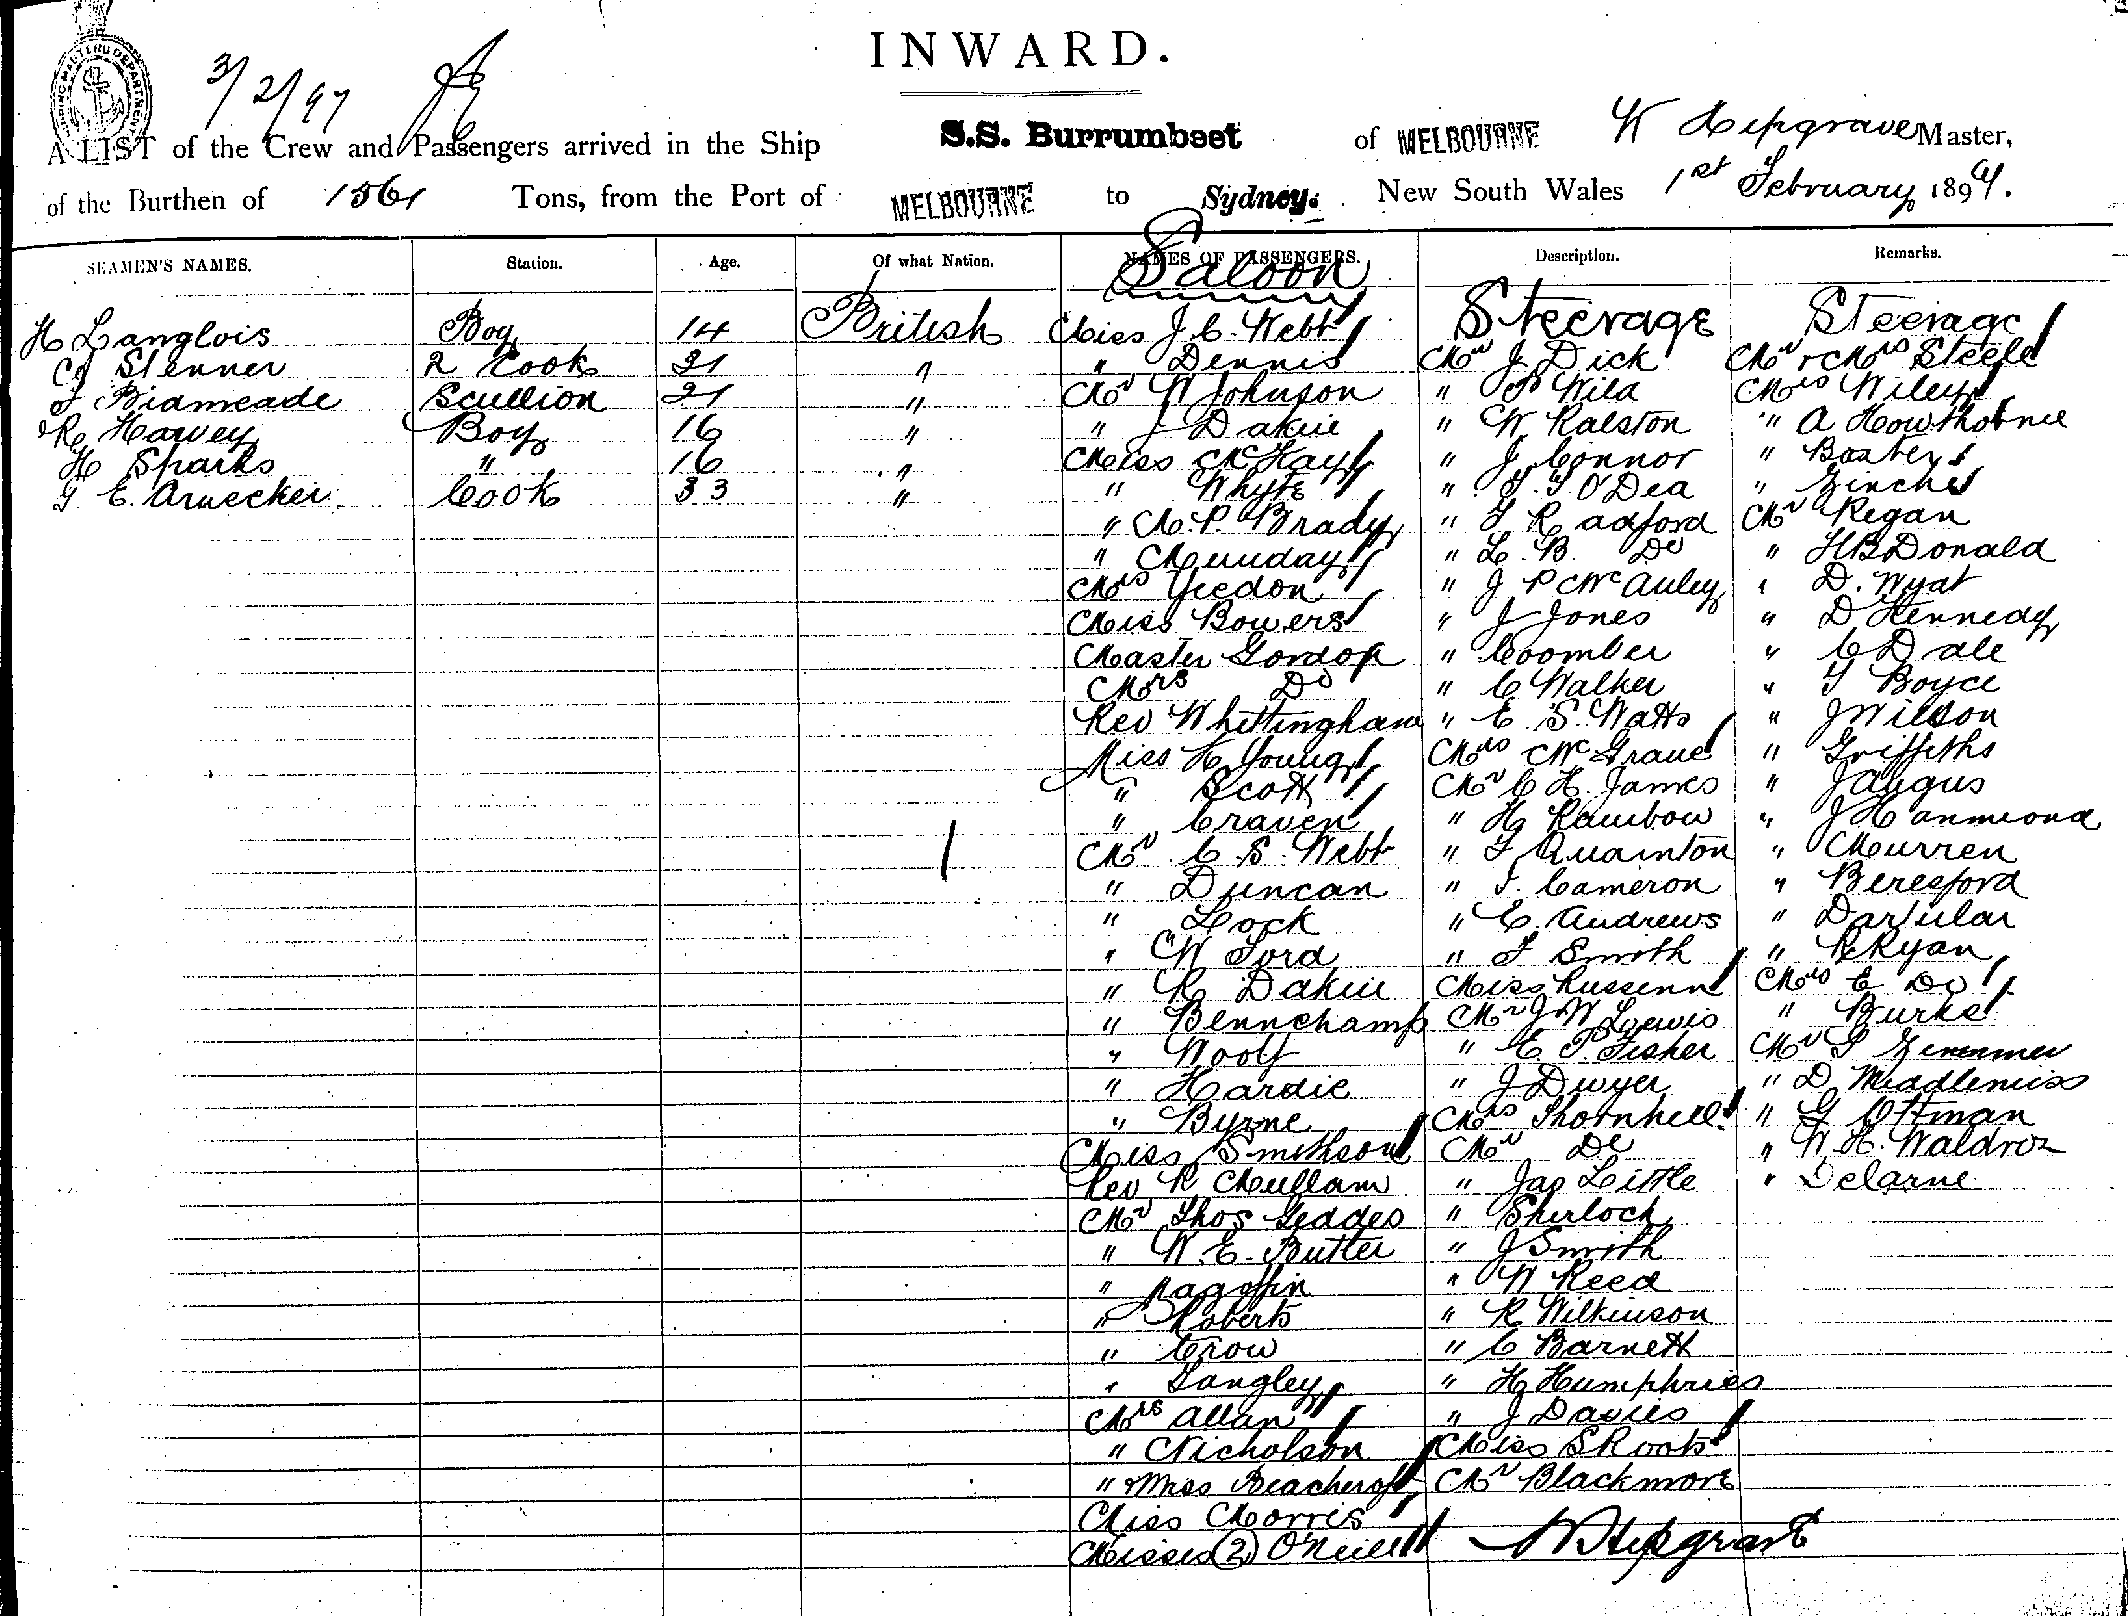 INWARD.
3/2/97
A LIST of the Crew and Passengers arrived in the Ship S.S. Burrumbeet of MELBOURNE W Hepgrave Master,
of the Burthen of 1561 Tons, from the Port of MELBOURNE to Sydney. New South Wales 1st February 1897.
SEAMEN'S NAMES. Station. Age. Of what Nation. NAMES OF PASSENGERS. Description. Remarks.
Saloon
H Langlois Boy 14 British Miss J. C. Webb Steerage Steerage
Stenner 2 Cook 21 " " Dennis Mr J. Dick Mr & Mrs Steele
Scullion 21 " Mr W Johnson " Wild Mrs Wiley
R Harvey Boy 16 " " J Dakin " W Ralston " A Howthorne
H Sparks " 16 " Miss McKay " J. Connor "
Cook 33 " " Whyte " O'Dea "
" M. P. Brady " Radford Mr Regan
" Munday " L. B. Do " H B Donald
Mrs " J P McAuley " D. Wyat
Miss Bowers " J Jones " D Kennedy
Master Gordon " Coomber " C Dale
Mrs Do " C Walker " T Boyce
Rev Whittingham " E. S. Watts " J Wilson
Miss H Young Mrs " Griffiths
" Scott Mr C H. James " J Angus
" Craven " H Rainbow " J Hammond
Mr C. S. Webb " Quainton " Murren
" Duncan " Cameron " Beresford
" Lock " E. Andrews "
" W Ford " Smith " R Ryan
" R Dakin Miss Mrs E Do
" Bennchamp Mr J W Lewis " Burke
" Woolf " E P. Fisher Mr
" Hardie " J Dwyer " D Middlemiss
" Byrne Mrs Thornhill " G Ottman
Miss Smithson Mr Do " W H. Waldron
Rev R Mullam " Jas Little " Delarne
Mr Thos Geddes " Sherlock
" W. E. Butler " J Smith
" " W Reed
" Roberts " R Wilkinson
" Crow " C Barnett
" Langley " H Humphries
Mrs Allan " J Davies
" Nicholson Miss S Roots
" & Miss Beachcroft Mr Blackmore
Miss Morris
Misses (2) O'Neill W Hepgrave